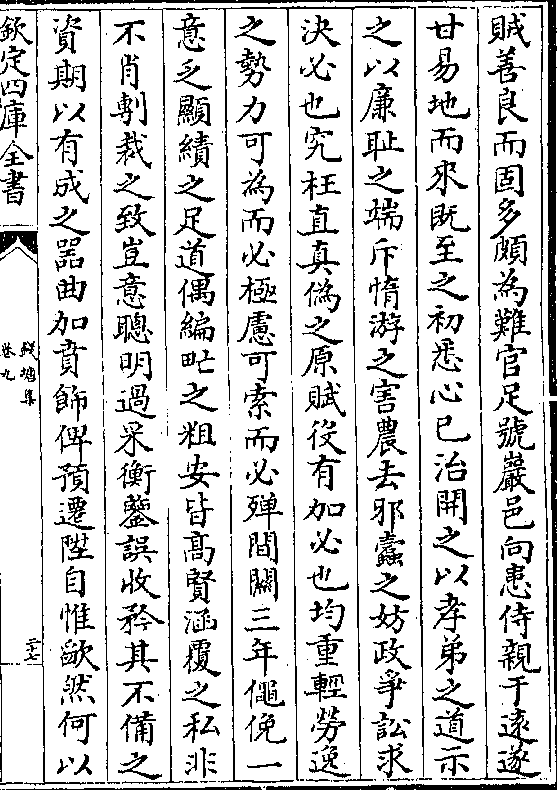 賊善良而固多頗為難官足號巖邑向患侍親于遠遂
甘易地而來既至之初悉心已治開之以孝弟之道示
之以廉耻之端斥惰游之害農去邪蠹之妨政爭訟求
決必也究枉直真偽之原賦役有加必也均重輕勞逸
之勢力可為而必極慮可索而必殫間關三年僶俛一
意乏顯績之足道偶編甿之粗安皆髙賢涵覆之私非
不肖剸裁之致豈意聰明過采衡鑒誤收矜其不備之
資期以有成之器曲加賁飾俾預遷陞自惟歉然何以
欽定四庫全書
錢塘集
卷九
二十七